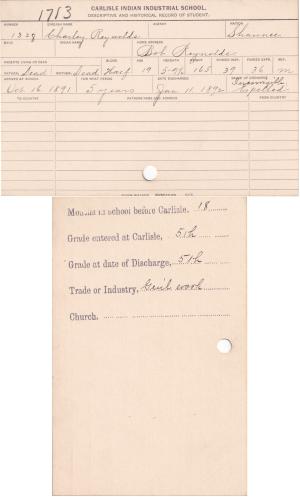 1713
CARLISLE INDIAN INDUSTRIAL SCHOOL.
DESCRIPTIVE AND HISTORICAL RECORD OF STUDENT.
NUMBER ENGLISH NAME AGENCY NATION
1328 Charley Reynolds Shawnee
BAND INDIAN NAME HOME ADDRESS
Bob Reynolds
PARENTS LIVING OR DEAD BLOOD AGE HEIGHT WEIGHT FORCED INSP. FORCED EXPR. SEX
FATHER Dead MOTHER Dead Half 19 165 39 36 M
ARRIVED AT SCHOOL FOR WHAT PERIOD DATE DISCHARGED CAUSE OF DISCHARGE
Oct 16 1891 5 years Jan 11, 1892 Expelled
TO COUNTRY PATRONS NAME AND ADDRESS FROM COUNTRY
Months in school before Carlisle, 18
Grade entered at Carlisle, 5th
Grade at date of Discharge, 5th
Trade or Industry, Gen'l work
Church.